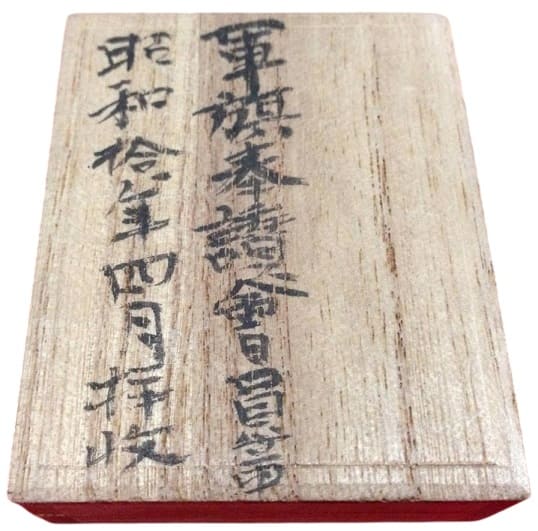 軍旗奉讃會員章
昭和拾年四月拝收